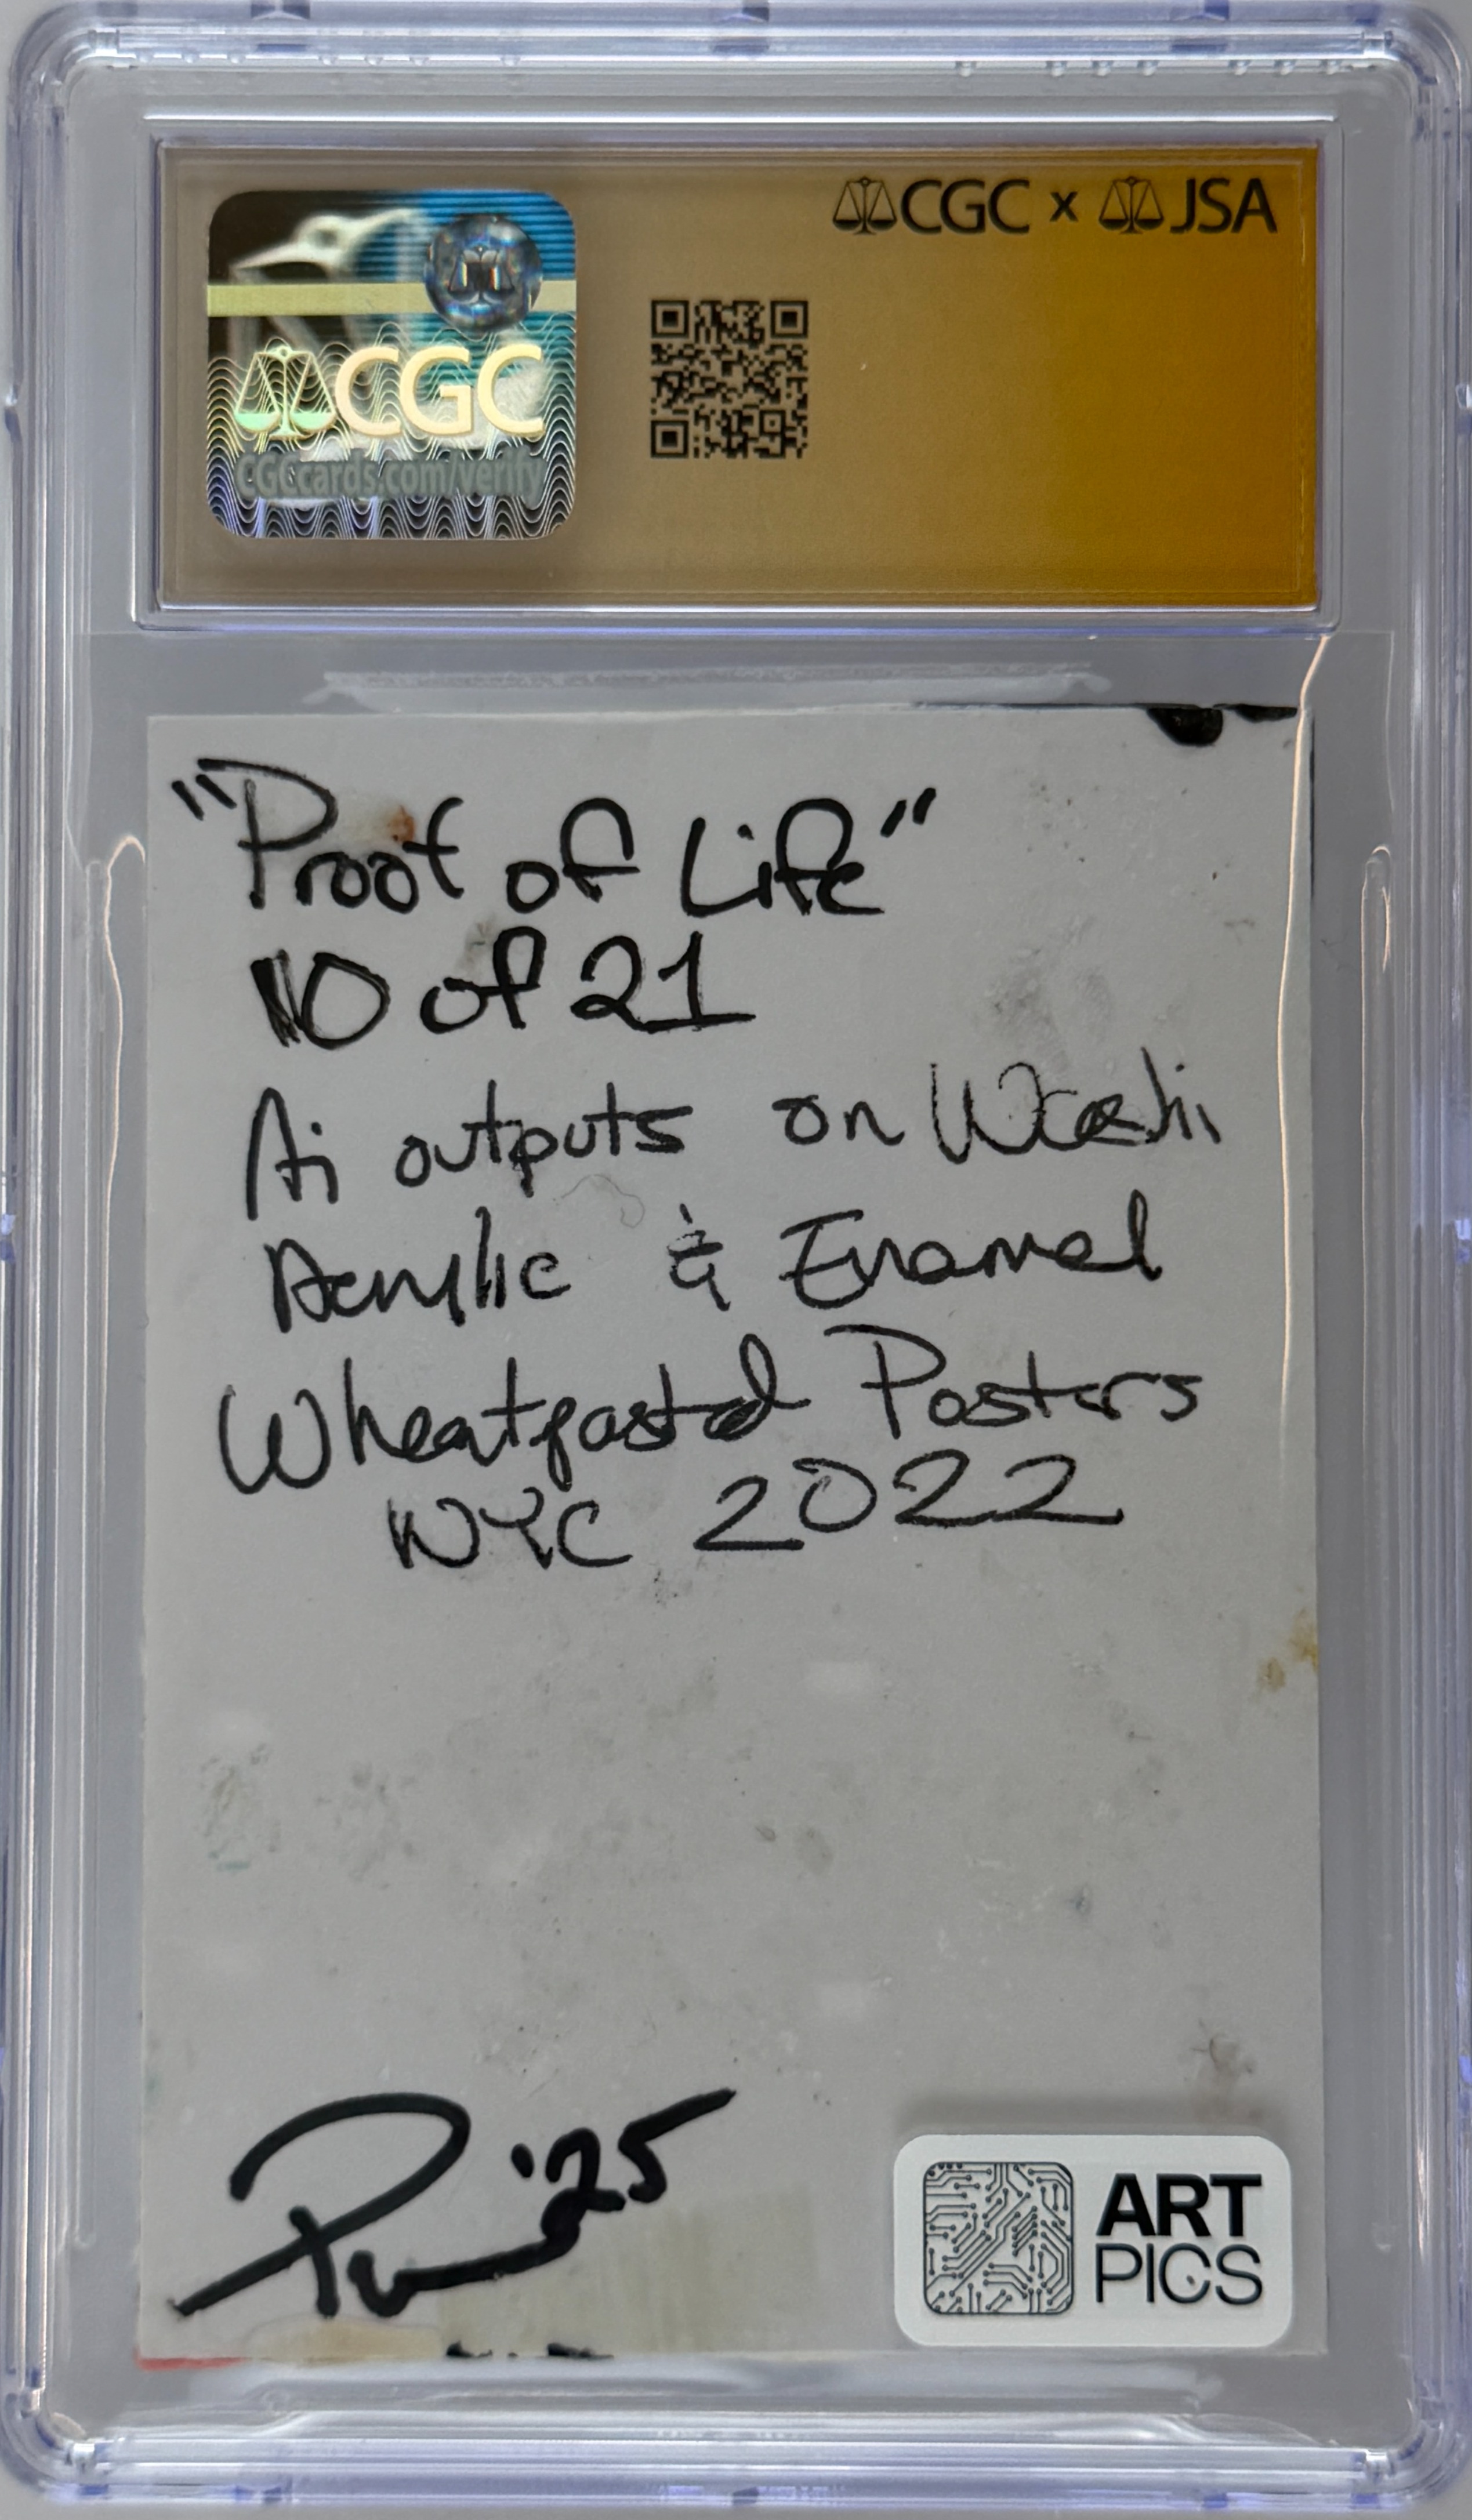 CGC x JSA
CGC
CGCcards.com/verify
"Proof of Life"
10 of 21
Ai outputs on Washi
Acrylic & Enamel
Wheatpasted Posters
NYC 2022
'25
ART
PICS